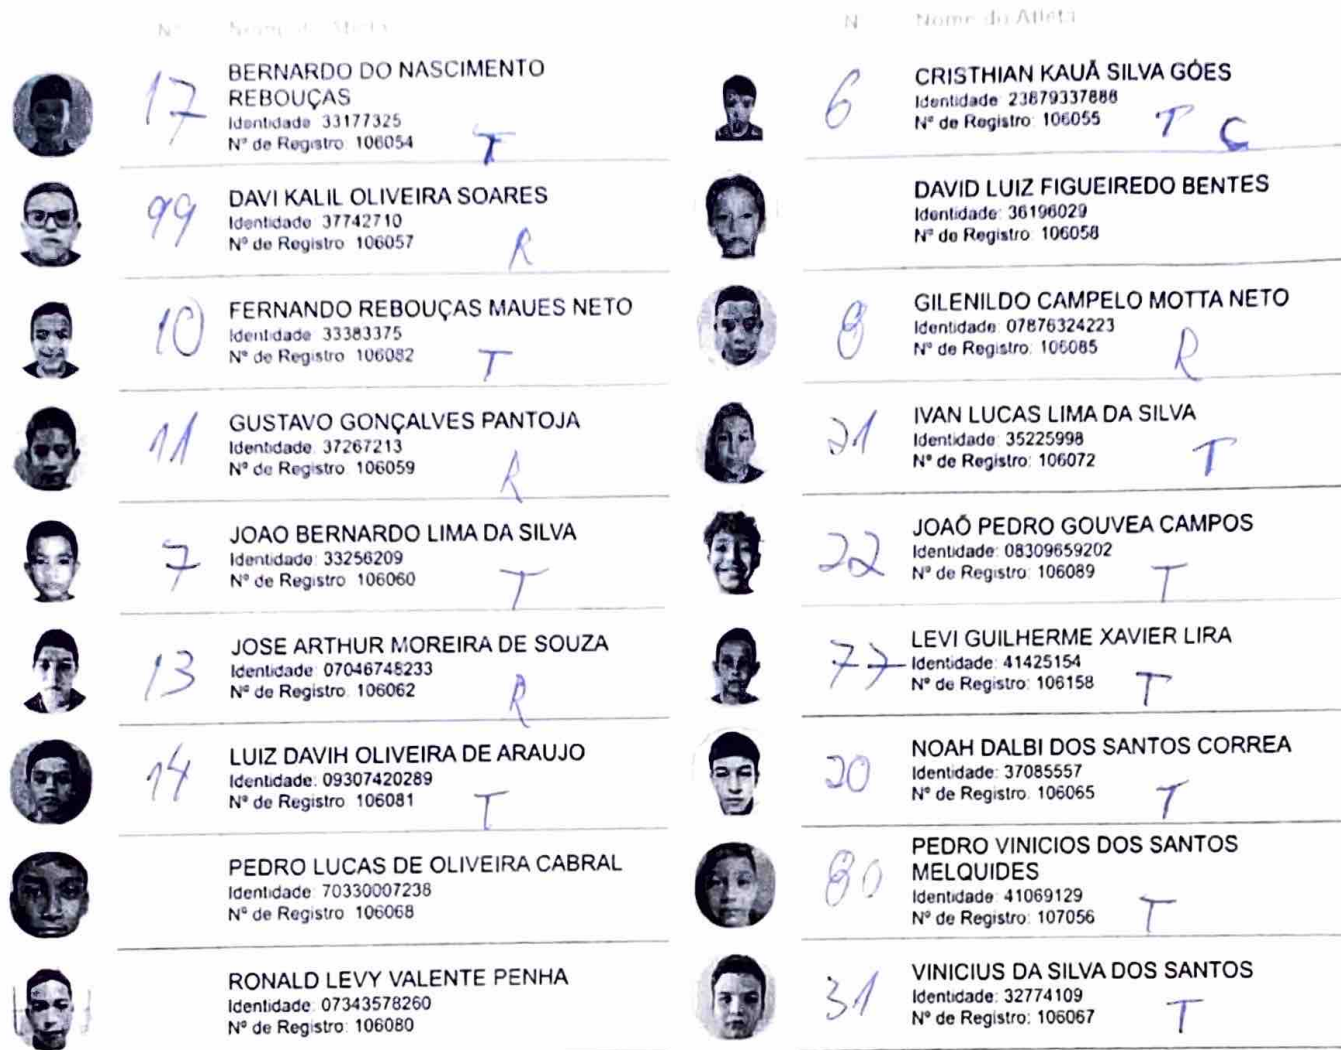 Nº Nome do Atleta
17 BERNARDO DO NASCIMENTO
REBOUÇAS
Identidade 33177325
Nº de Registro 106054 T
99 DAVI KALIL OLIVEIRA SOARES
Identidade: 37742710
Nº de Registro 106057 R
10 FERNANDO REBOUÇAS MAUES NETO
Identidade 33383375
Nº de Registro 106082 T
11 GUSTAVO GONÇALVES PANTOJA
Identidade 37267213
Nº de Registro 106059 R
7 JOAO BERNARDO LIMA DA SILVA
Identidade: 33256209
Nº de Registro 106060 T
13 JOSE ARTHUR MOREIRA DE SOUZA
Identidade: 07046748233
Nº de Registro: 106062 R
14 LUIZ DAVIH OLIVEIRA DE ARAUJO
Identidade: 09307420289
Nº de Registro 106081 T
PEDRO LUCAS DE OLIVEIRA CABRAL
Identidade: 70330007238
Nº de Registro 106068
RONALD LEVY VALENTE PENHA
Identidade: 07343578260
Nº de Registro: 106080
N Nome do Atleta
6 CRISTHIAN KAUÃ SILVA GÓES
Identidade 23879337888
Nº de Registro: 106055 T C
DAVID LUIZ FIGUEIREDO BENTES
Identidade: 36196029
Nº de Registro 106058
8 GILENILDO CAMPELO MOTTA NETO
Identidade: 07876324223
Nº de Registro: 106085 R
21 IVAN LUCAS LIMA DA SILVA
Identidade: 35225998
Nº de Registro: 106072 T
22 JOAÕ PEDRO GOUVEA CAMPOS
Identidade: 08309659202
Nº de Registro: 106089 T
77 LEVI GUILHERME XAVIER LIRA
Identidade: 41425154
Nº de Registro: 106158 T
20 NOAH DALBI DOS SANTOS CORREA
Identidade: 37085557
Nº de Registro: 106065 T
80 PEDRO VINICIOS DOS SANTOS
MELQUIDES
Identidade: 41069129
Nº de Registro: 107056 T
31 VINICIUS DA SILVA DOS SANTOS
Identidade: 32774109
Nº de Registro: 106067 T